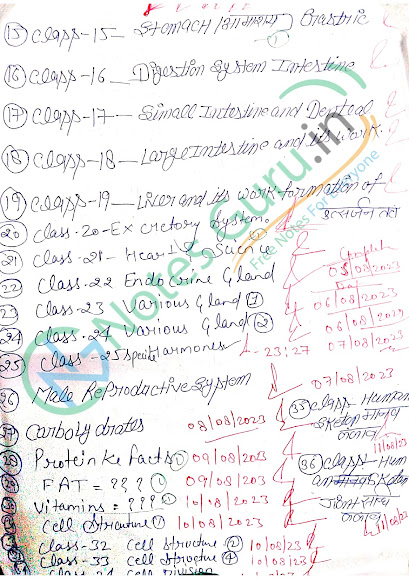 (15) Class-15- Stomach (आमाशय) Gastric
(16) Class-16- Digestion System Intestine
(17) Class-17- Simall Intestine and Dented
(18) Class-18- Large Intestine and its work.
(19) Class-19- Liver and its work-formation of
20 Class-20-Excretory System. उत्सर्जन तंत्र
21 Class-21- Heart
22 Class-22 Endocrine Gland
05/08/2023
23 Class-23 Various Gland (1) 06/08/2023
24 Class-24 Various Gland (2) 06/08/2023
25 Class-25 Specific Harmones - 23:27 07/08/2023
26 Male Reproductive System 07/08/2023
27 Carbohydrates 08/08/2023 (35) Class Human
28 Protein ke facts (1) 09/08/2023 11/08/23
FAT = ??? (1) 09/08/2023 (36) Class-Hum
Vitamins = ??? (1) 10/08/2023
Cell Structure (1) 10/08/2023
Class-32 Cell Structure (2) 10/08/23
Class-33 Cell Structure (4) 10/08/23
Class-34 Cell Division
NotesGuru.in
Free Notes For Everyone